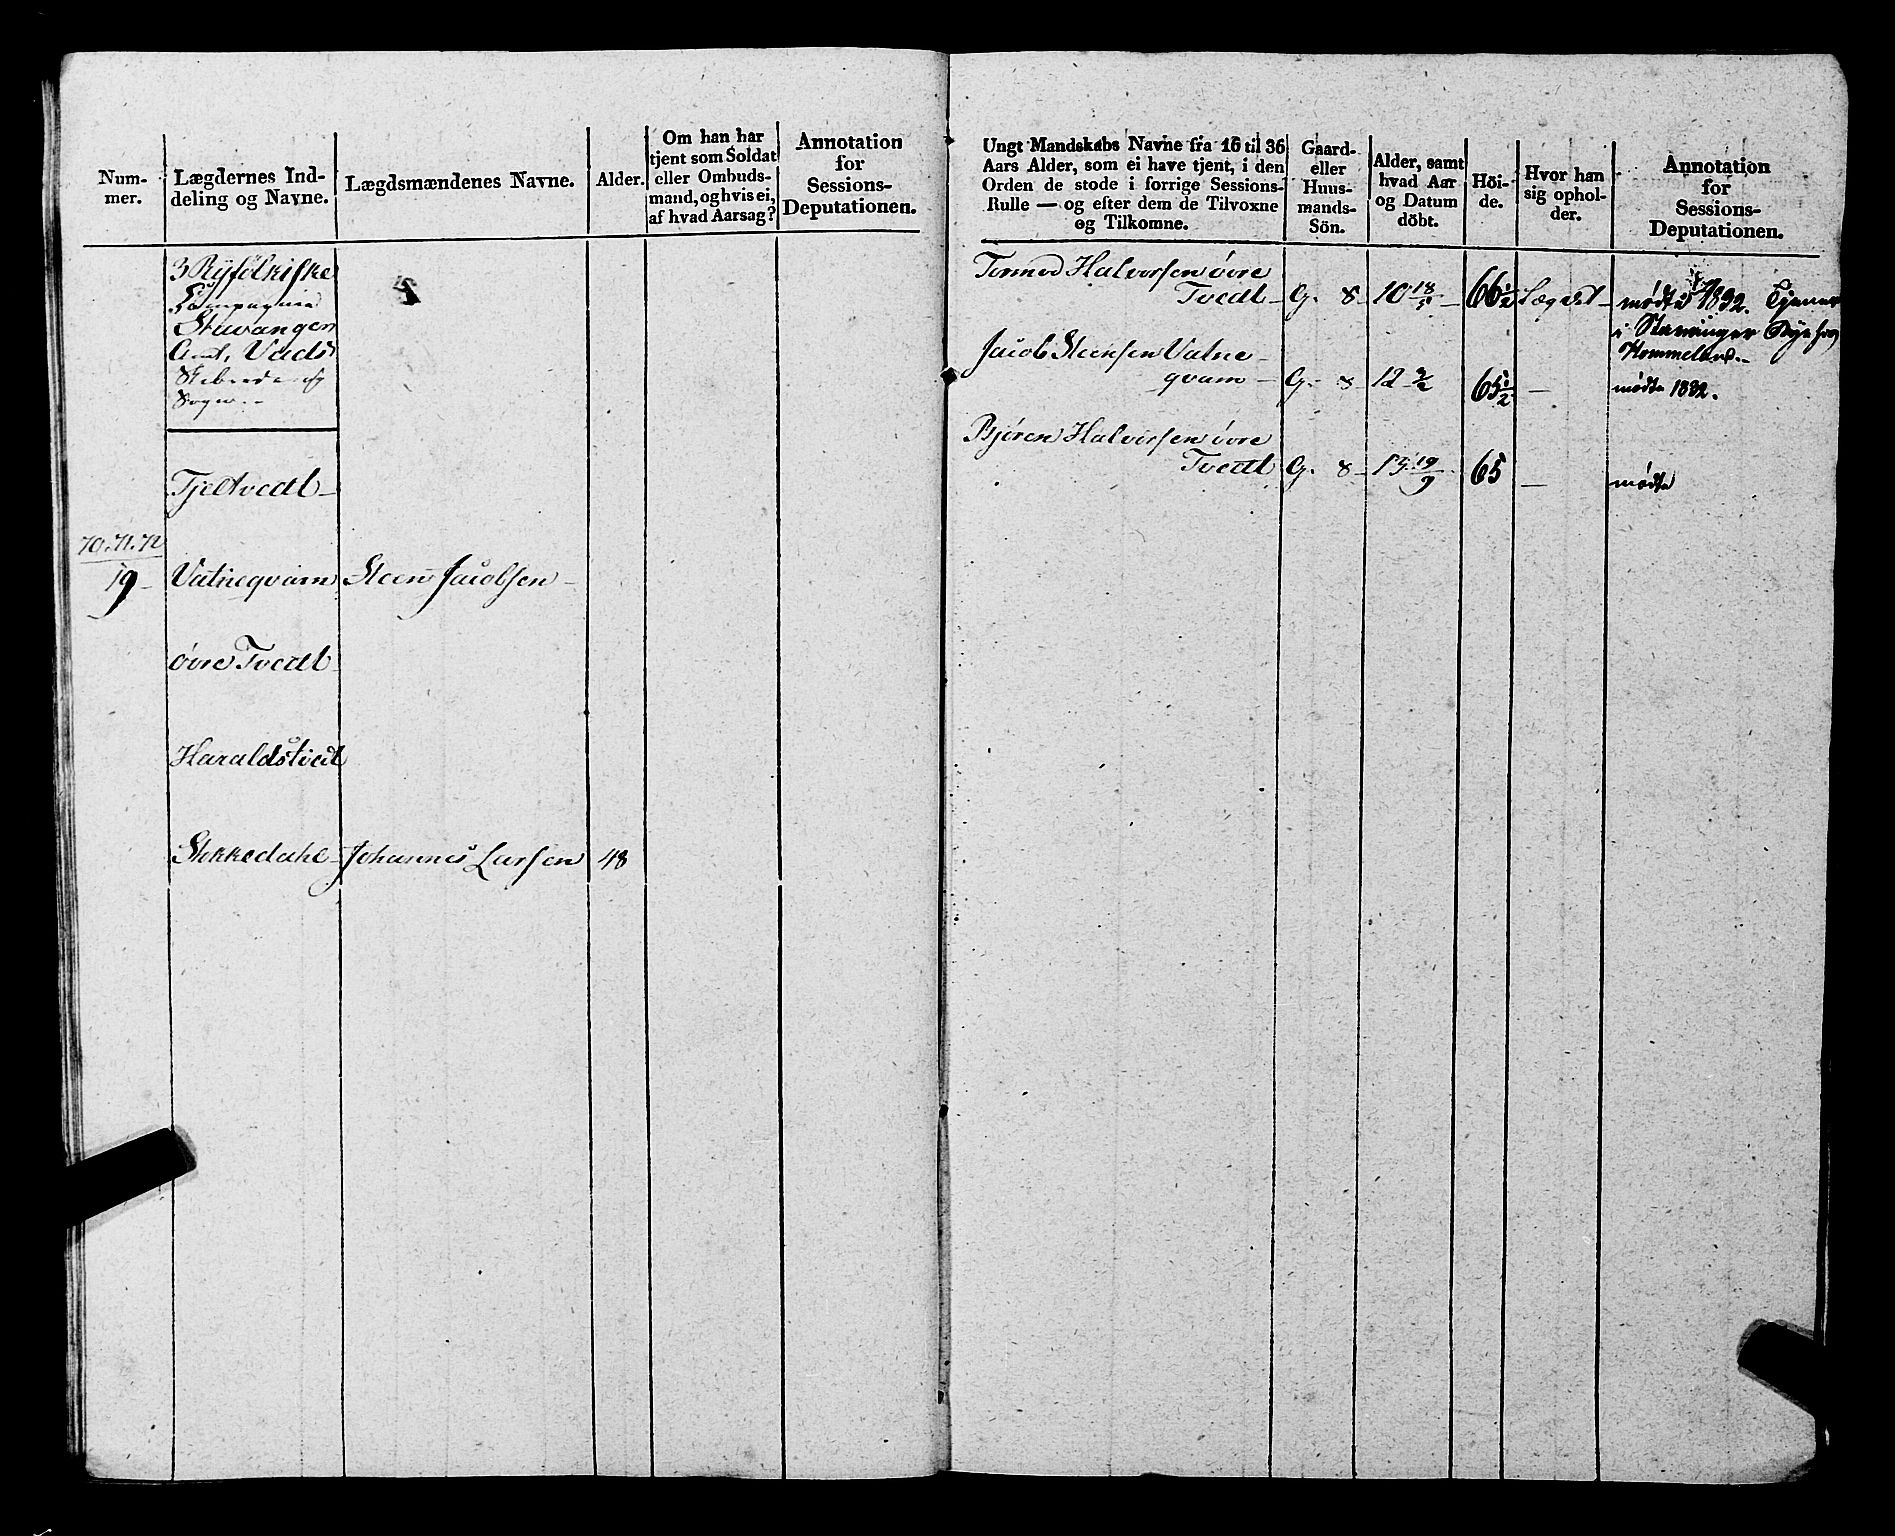 Num-
mer.
Lægdernes Ind-
deling og Navne.
Lægdsmændenes Navne.
Alder.
Om han har
tjent som Soldat
eller Ombuds-
mand, og hvis ei,
af hvad Aarsag?
Annotation
for
Sessions-
Deputationen.
3 Ryfølkiske
Compagnie
Stavanger
Amt, Vads
Skibrede og
Sogn.-
Tjeltvedt-
70.71.72
19- Vatneqvam Steen Jacobsen-
øvre Tvedt
Haraldstvedt
Stokkedahl- Johannes Larsen 48
Ungt Mandskabs Navne fra 16 til 36
Aars Alder, som ei have tjent, i den
Orden de stode i forrige Sessions-
Rulle — og efter dem de Tilvoxne
og Tilkomne.
Gaard-
eller
Huus-
mands-
Sön.
Alder, samt
hvad Aar
og Datum
döbt.
Höi-
de.
Hvor han
sig ophol-
der.
Annotation
for
Sessions-
Deputationen.
Tormod Halvorsen øvre
Tvedt- G. 8- 10 18/5 - 66 1/2 Lægdet- mødte 1832. Tjener
i Stavanger
Jacob Steensen Vatne-
qvam- G. 8- 12 65 1/2 - mødte 1832.
Bjøren Halvorsen øvre
Tvedt G. 8- 15 19/9 65 - mødte